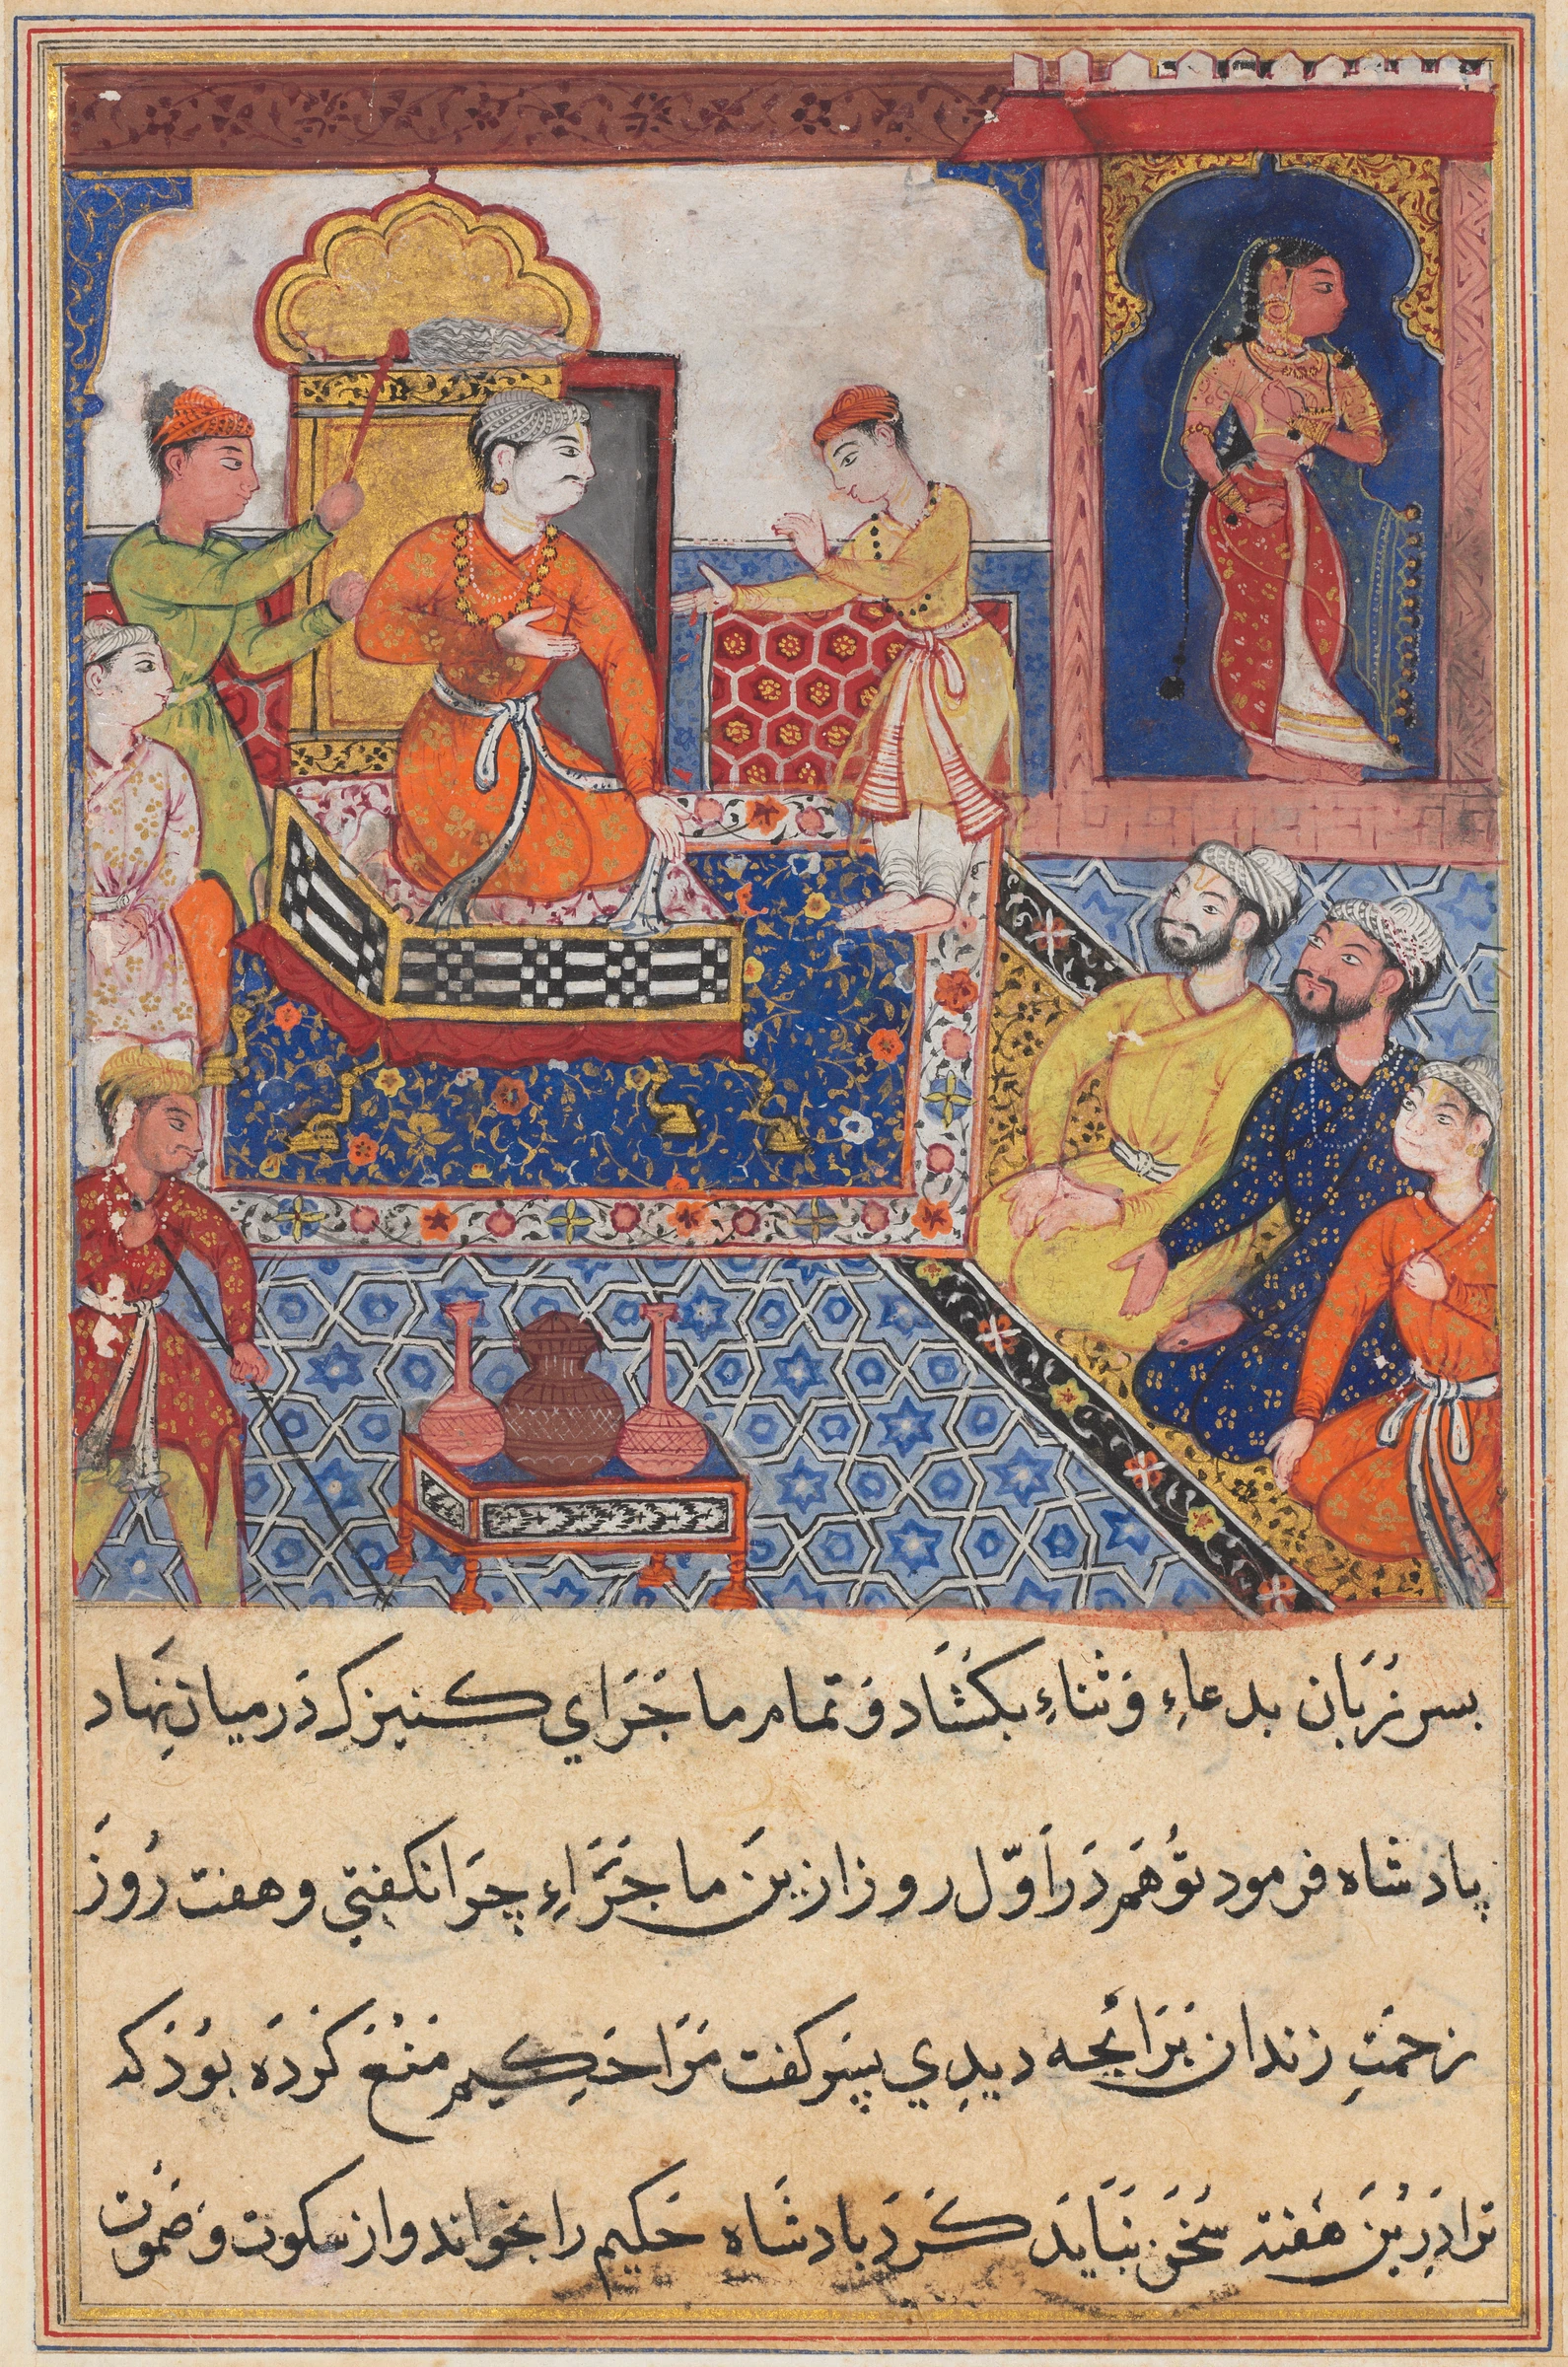 بسر زبان بدعاءِ و ثناءِ بکشاد و تمام ماجرای کنیزک در میان نهاد
پادشاه فرمود تو هم در اوّل روز ازین ماجراءِ چرا نکفتی و هفت روز
زحمتِ زندان برائجه دیدِی پسر کفت مرا حکیم منع کرده بود که
ترا درین هفته سخن نباید کرد بادشاه حکیم را بخواند و از سکوت و صموت